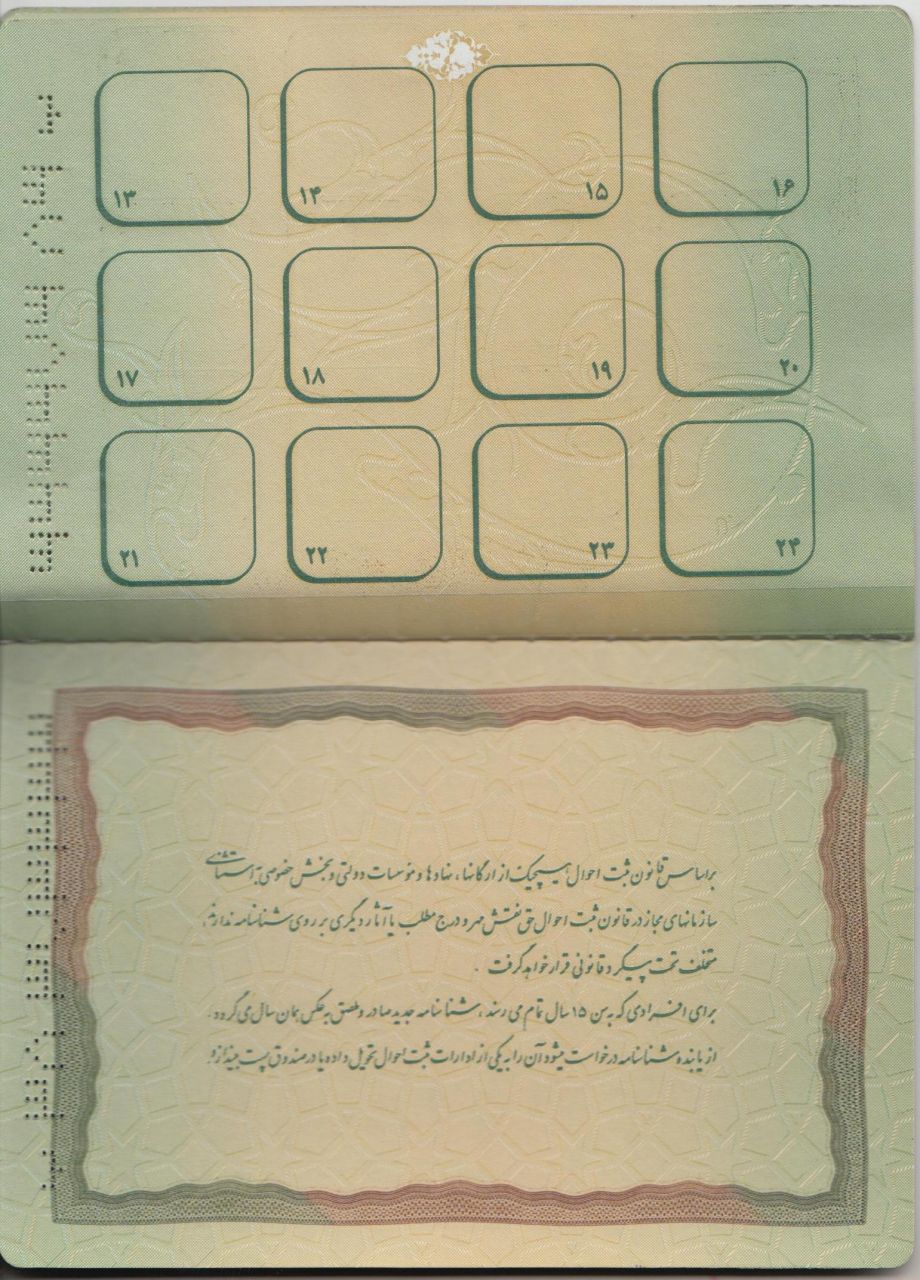 ۱۳ ۱۴ ۱۵ ۱۶
۱۷ ۱۸ ۱۹ ۲۰
۲۱ ۲۲ ۲۳ ۲۴
براساس قانون ثبت احوال هیچیک از ارگانها، نهادها و مؤسسات دولتی و بخش خصوصی به استثنای
سازمانهای مجاز در قانون ثبت احوال حق نقش مهر و درج مطلب یا آثار دیگری بر روی شناسنامه ندارند
متخلف تحت پیگرد قانونی قرار خواهد گرفت .
برای افرادی که به سن ۱۵ سال تمام می رسند ، شناسنامه جدید صادر و ملصق به عکس همان سال می گردد .
از یابنده شناسنامه درخواست میشود آن را به یکی از ادارات ثبت احوال تحویل داده یا در صندوق پست بیندازد